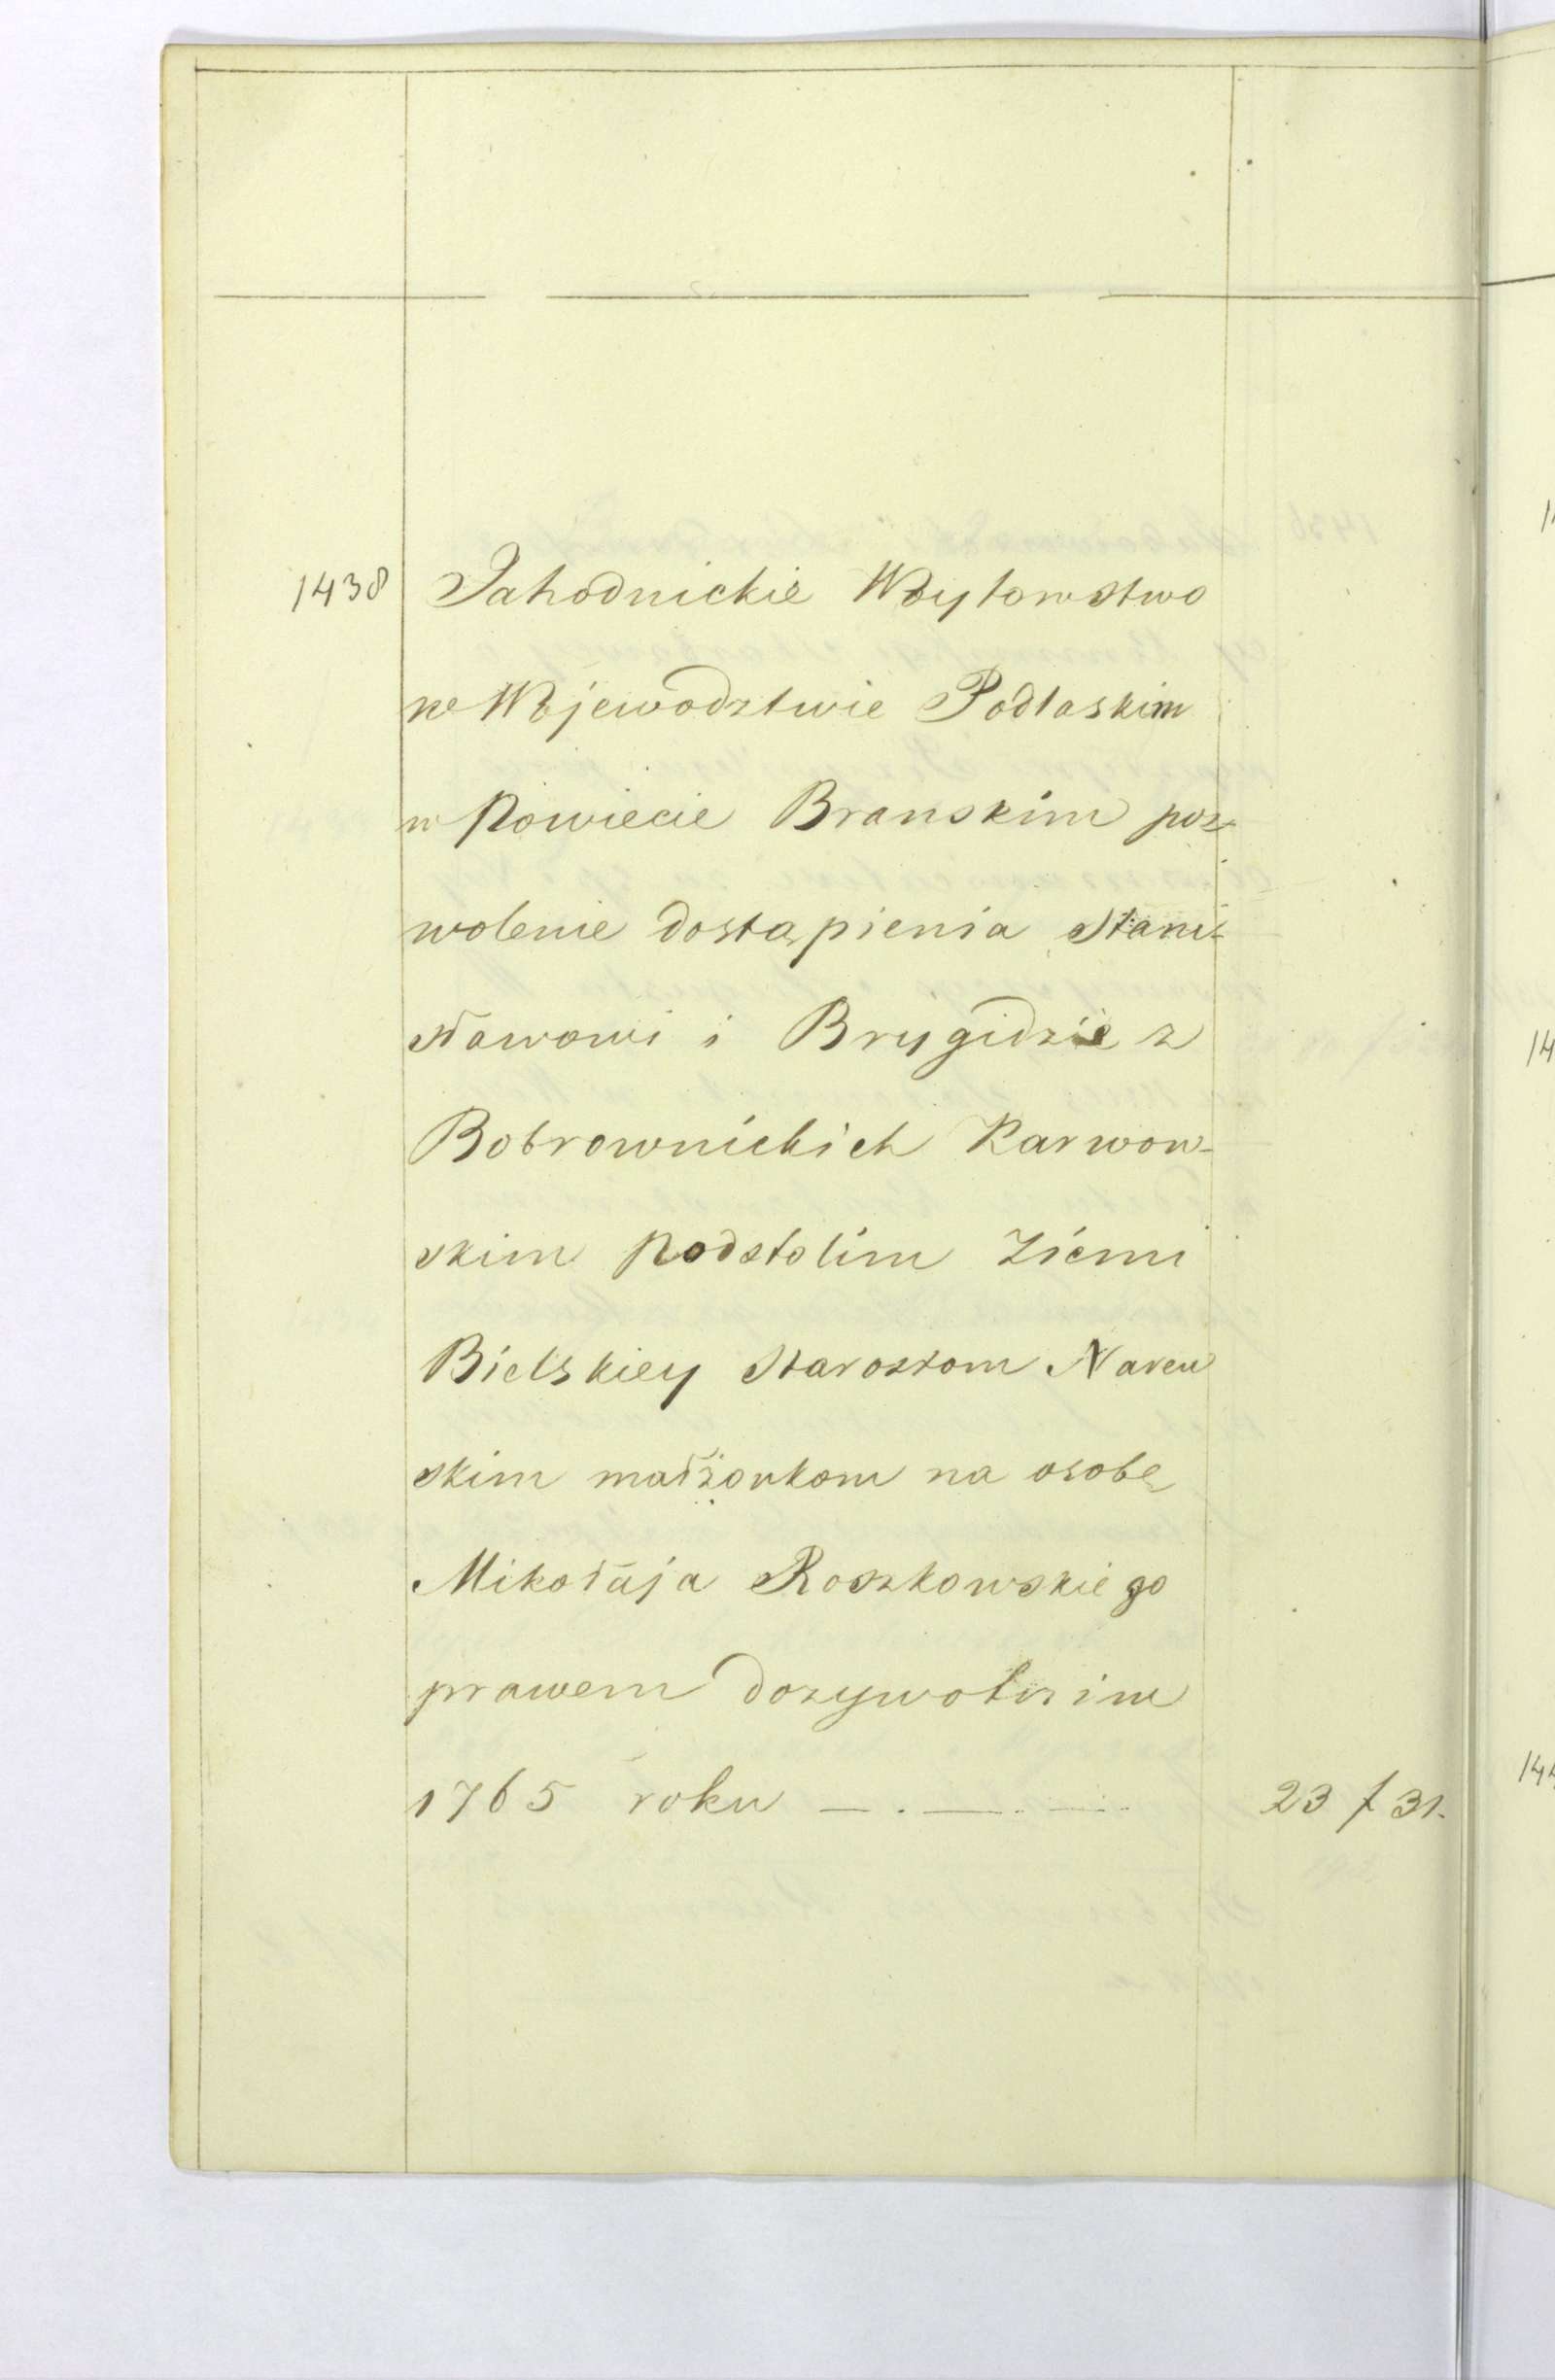 1438 Jahodnickie Woytowstwo
w Wojewodztwie Podlaskim
w Powiecie Branskim poz-
wolenie dostąpienia Stani-
sławowi i Brygidzie z
Bobrownickich Karwow-
skim Podstolim Ziemi
Bielskiey Starostom Narew
skim małżonkom na osobę
Mikołaja Roszkowskiego
prawem dozywotnim
1765 roku — . — . — . 23 f 31.